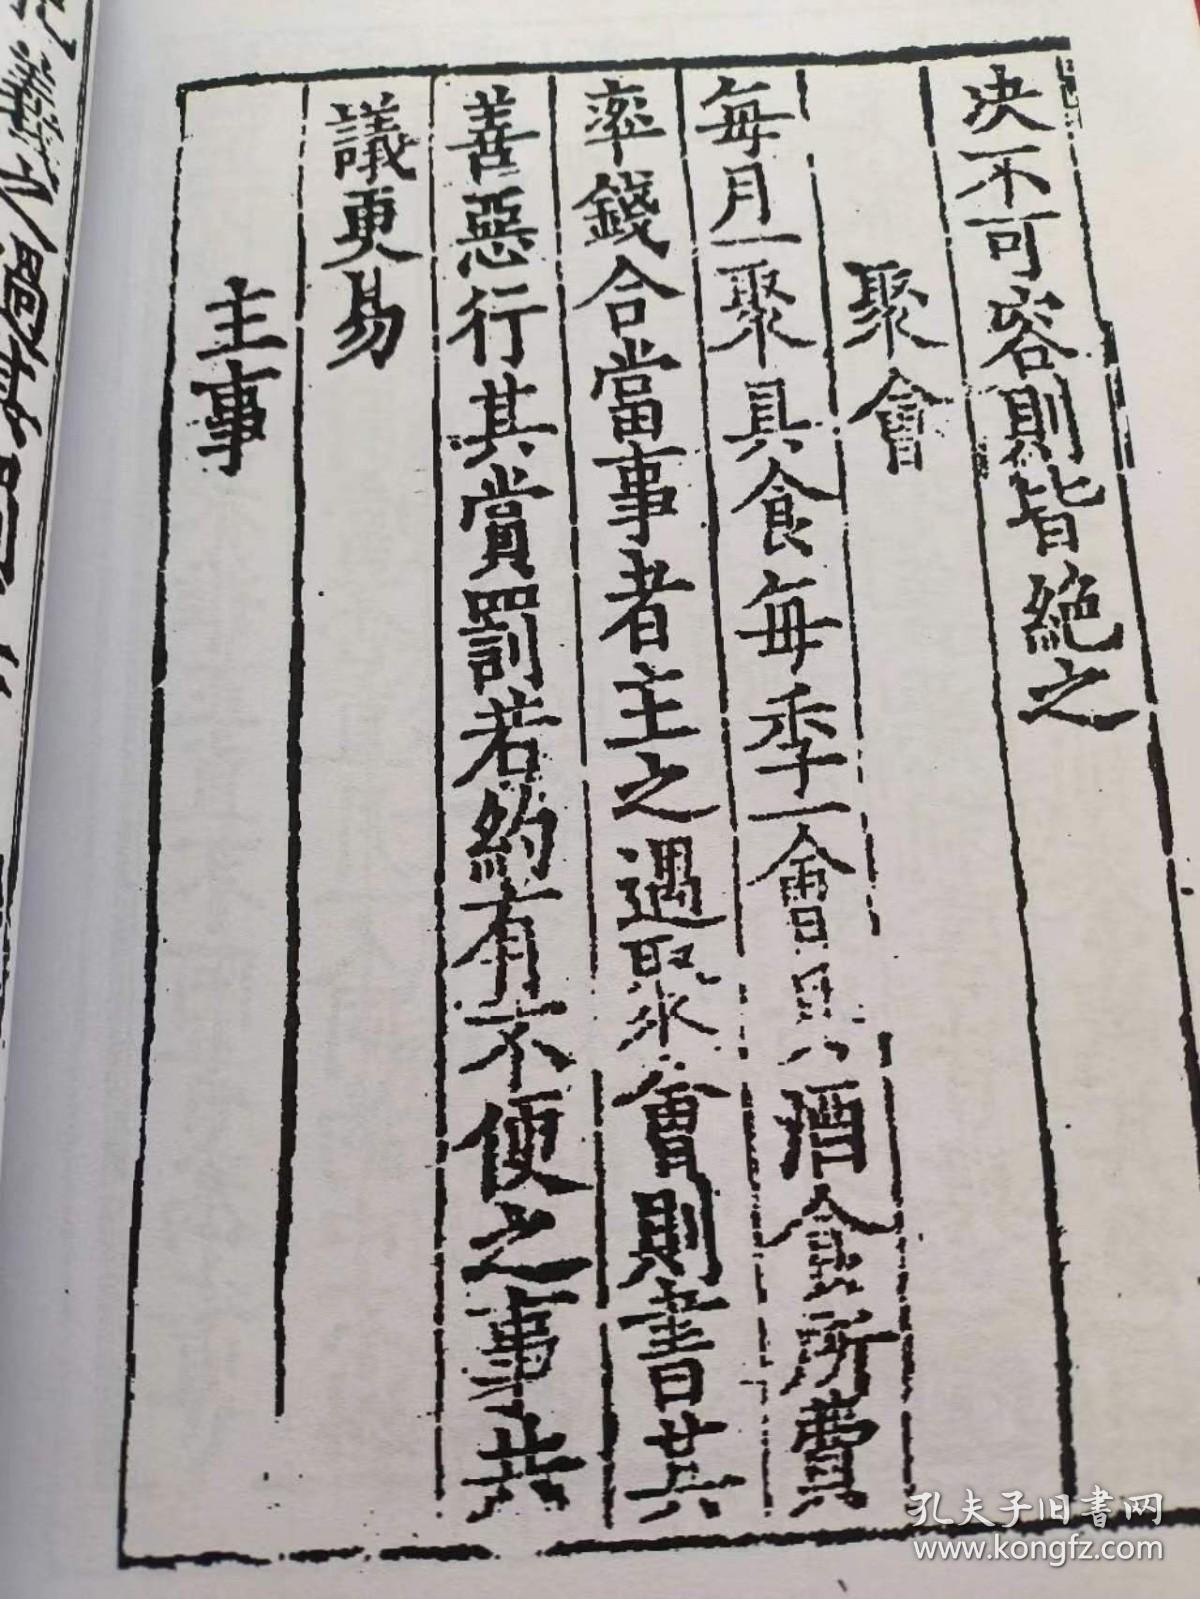 决不可容則皆絕之
聚會
每月一聚具食每季一會具酒食所費
率錢合當事者主之遇聚會則書其
善惡行其賞罰若約有不便之事共
議更易
主事
孔夫子旧书网
www.kongfz.com